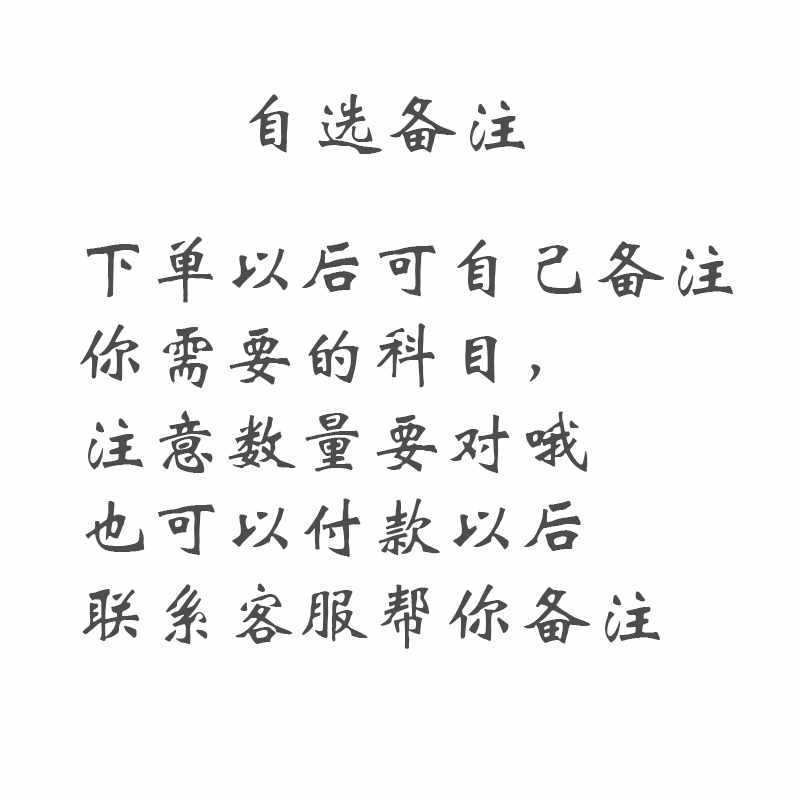 自选备注
下单以后可自己备注
你需要的科目，
注意数量要对哦
也可以付款以后
联系客服帮你备注